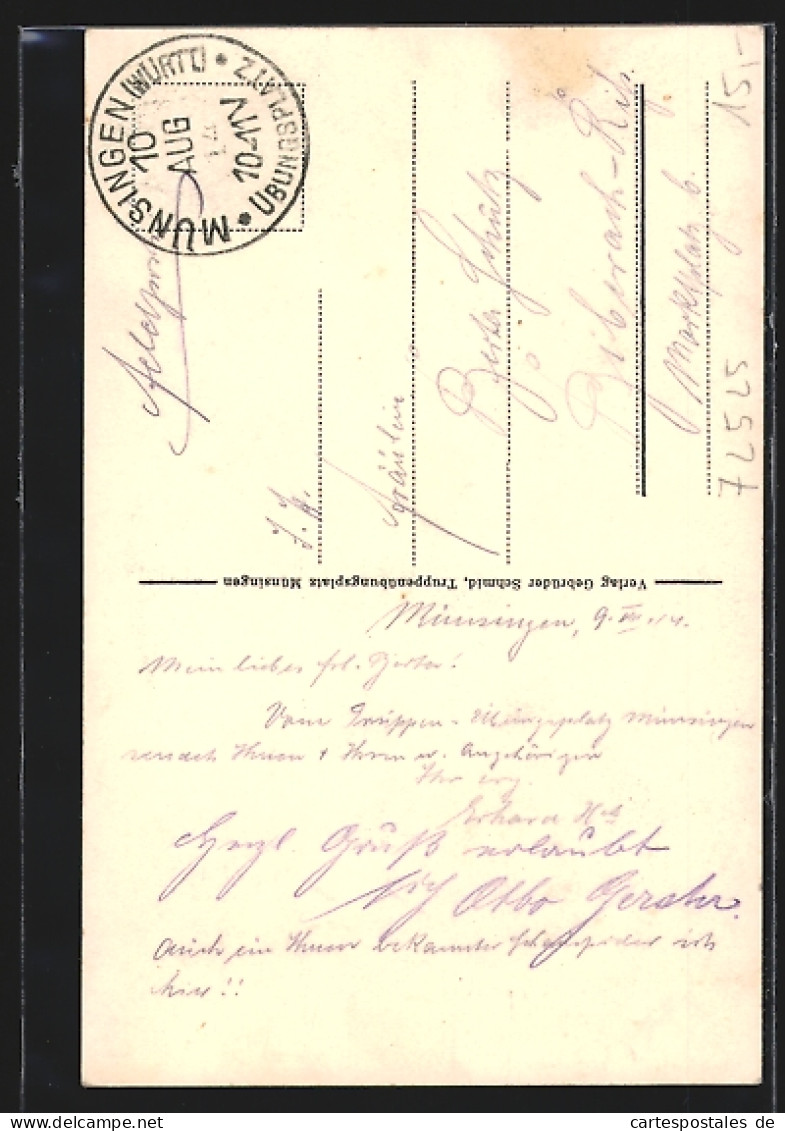 MÜNSINGEN (WÜRTT.)
10
AUG
10-11V
ÜBUNGSPLATZ
S. H.
Fräulein
Berta Schütz
Biberach-Riß.
Marktplatz 6.
15,-
72525
Verlag Gebrüder Schmid, Truppenübungsplatz Münsingen
Münsingen, 9. VIII. 14.
Mein liebes Frl. Berta!
Vom Truppen-Übungsplatz Münsingen
sendet Ihnen + Ihren w. Angehörigen
Ihr erg.
Erhard
Herzl. Gruß erlaubt
sich Otto
Auch ein Ihnen bekannter Schauspieler ist
hier!!
cartespostales de